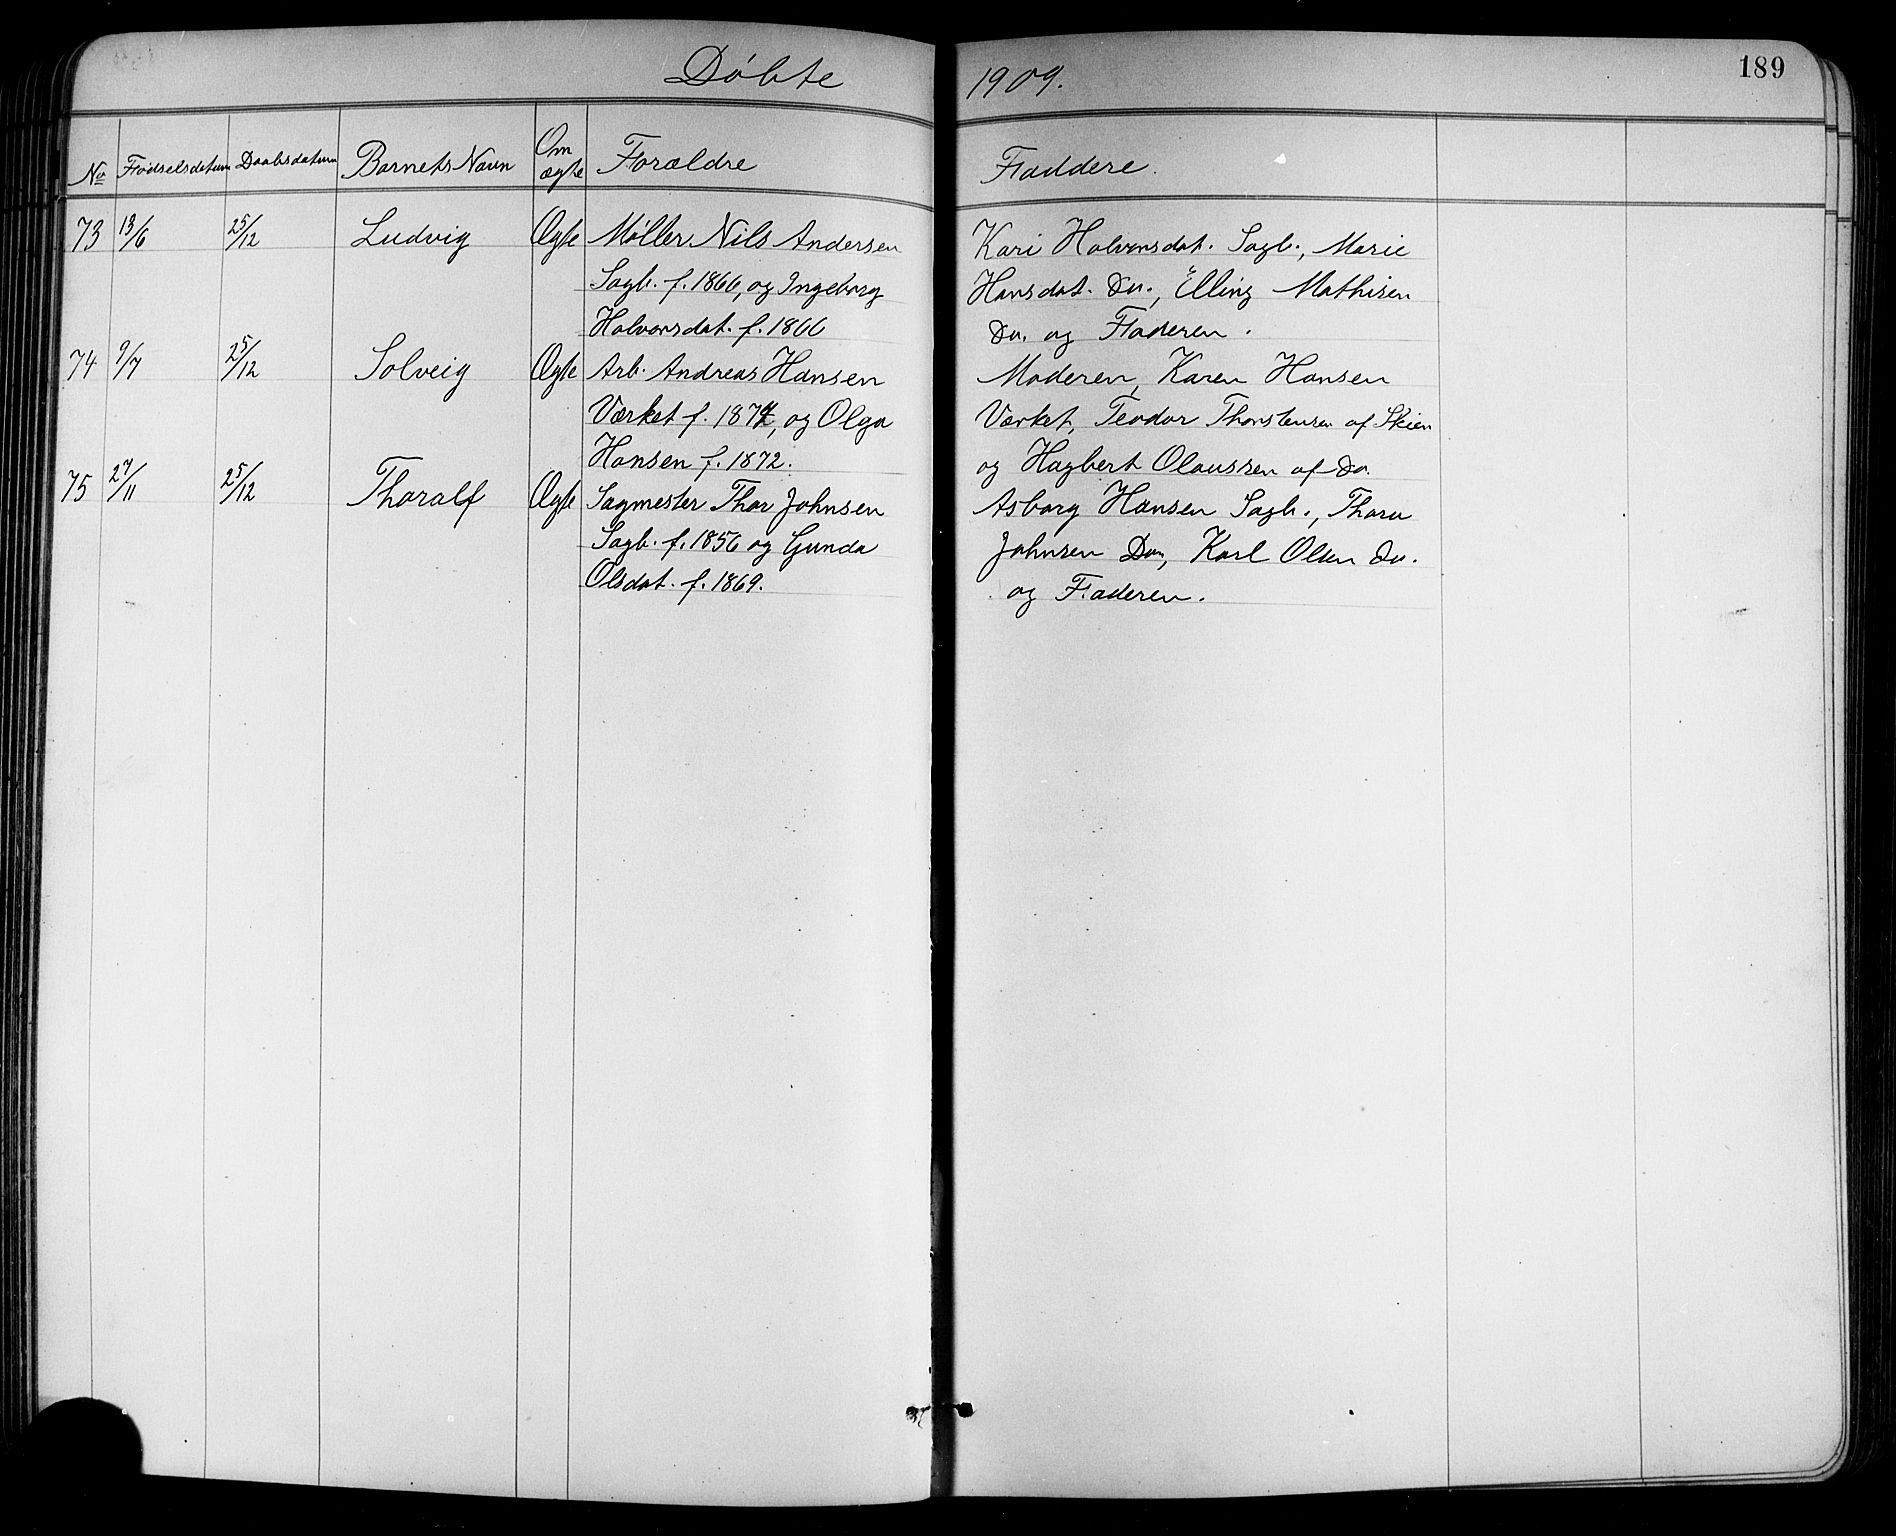 Døbte 1909. 189
No Fødselsdatum Daabsdatum Barnets Navn Om ægte Forældre Faddere.
73 13/6 25/12 Ludvig Ægte Møller Nils Andersen
Sagb. f. 1866, og Ingeborg
Halvorsdat. f. 1866
Kari Halvorsdat. Sagb., Marie
Hansdat. Do., Elling Mathisen
Do. og Faderen.
74 9/7 25/12 Solveig Ægte Arb. Andreas Hansen
Værket f. 1874, og Olga
Hansen f. 1872.
Moderen, Karen Hansen
Værket, Teodor Thorstensen af Skien
og Hagbert Olaussen af Do.
75 27/11 25/12 Thoralf Ægte Sagmester Thor Johnsen
Sagb. f. 1856 og Gunda
Olsdat. f. 1869.
Asborg Hansen Sagb., Thora
Johnsen Do, Karl Olsen Do.
og Faderen.